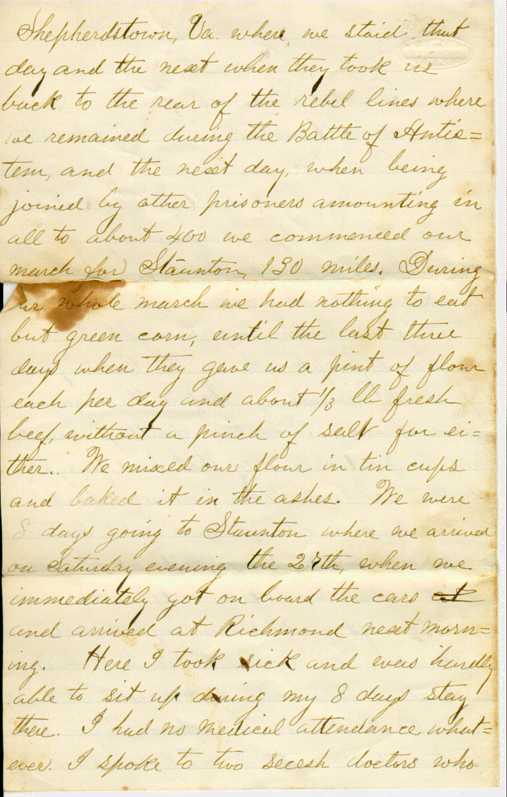 Shepherdstown, Va. where, we staid, that
day and the next when they took us
back to the rear of the rebel lines where
we remained during the Battle of Antie=
tem, and the next day, when being
joined by other prisoners amounting in
all to about 400 we commenced our
march for Staunton, 130 miles. During
our whole march we had nothing to eat
but green corn, until the last three
days when they gave us a pint of flour
each per day and about 1/3 lb fresh
beef, without a pinch of salt for ei=
ther. We mixed our flour in tin cups
and baked it in the ashes. We were
8 days going to Staunton where we arrived
on Saturday evening the 27th, when we
immediately got on board the cars
and arrived at Richmond next morn=
ing. Here I took sick and was hardly
able to sit up during my 8 days stay
there. I had no medical attendance what=
ever. I spoke to two secesh doctors who